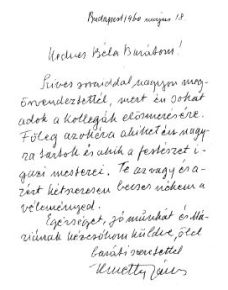 Budapest 1960 május 18.
Kedves Béla Barátom!
Szives soraiddal nagyon meg-
örvendeztettél, mert én sokat
adok a kollegák elösmerésére.
Főleg azokéra akiket én nagy-
ra tartok és akik a festészet i-
gazi mesterei. Te az vagy és a-
zért kétszeresen becses nékem a
véleményed.
Egészséget, jó munkát és Má-
riának kézcsókom küldve, ölel
baráti szeretettel
Kmetty János